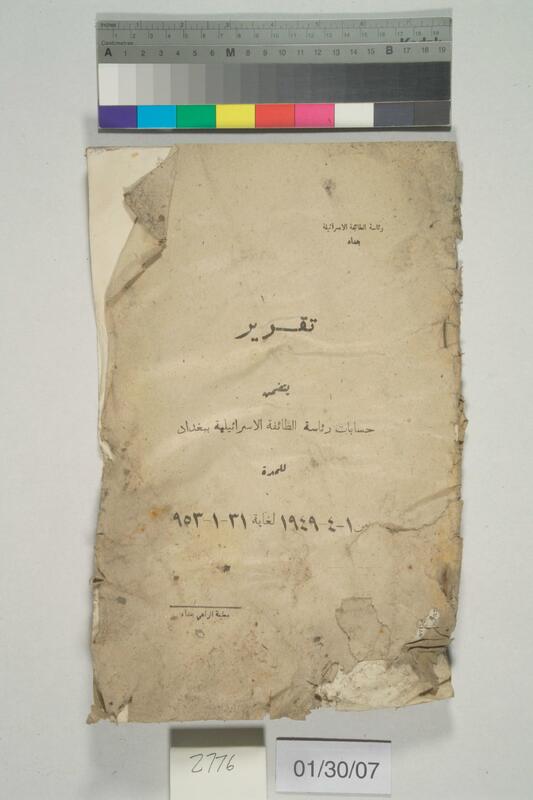 Inches 1 2 3 4 5 6 7
Centimetres
A 1 2 3 4 5 6 M 8 9 10 11 12 13 14 15 B 17 18 19
رئاسة الطائفة الاسرائيلية
بغداد
تقرير
يتضمن
حسابات رئاسة الطائفة الاسرائيلية ببغداد
للمدة
من ١-٤-١٩٤٩ لغاية ٣١-١-٩٥٣
مطبعة الراعي بغداد
2776
01/30/07